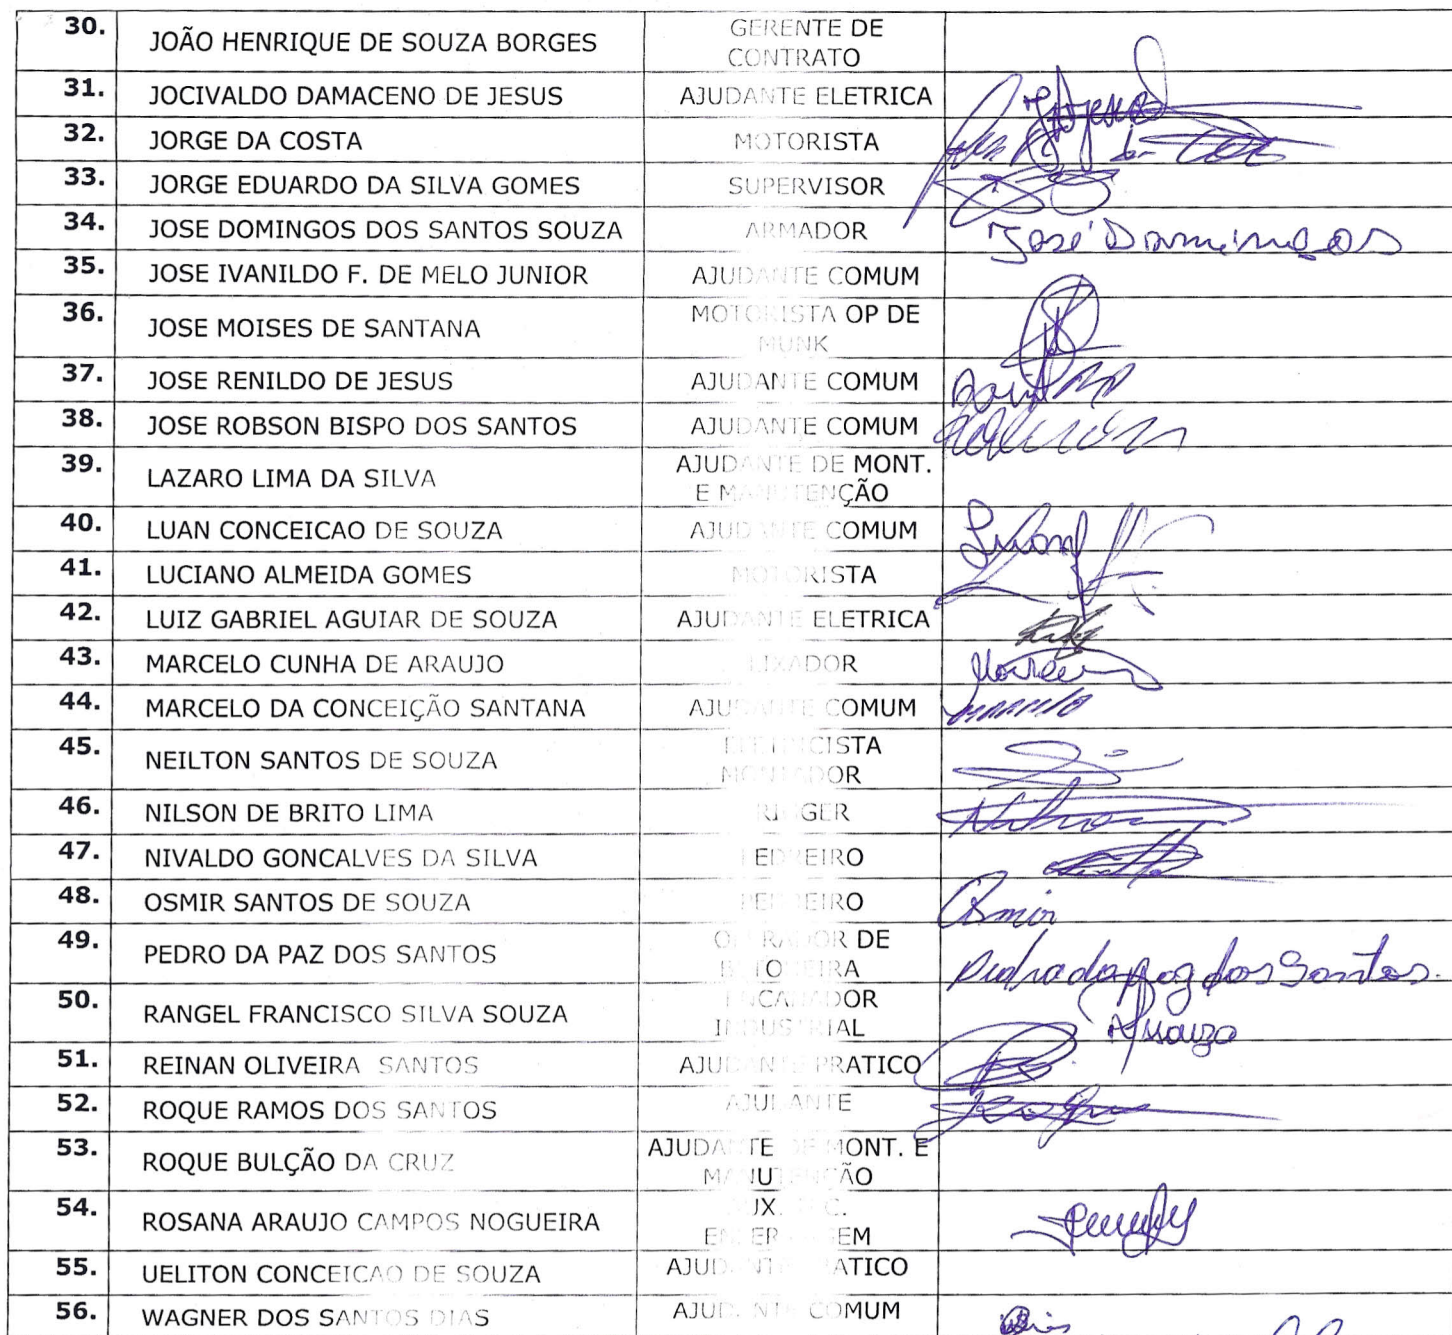 30. JOÃO HENRIQUE DE SOUZA BORGES GERENTE DE
CONTRATO
31. JOCIVALDO DAMACENO DE JESUS AJUDANTE ELETRICA
32. JORGE DA COSTA MOTORISTA
33. JORGE EDUARDO DA SILVA GOMES SUPERVISOR
34. JOSE DOMINGOS DOS SANTOS SOUZA ARMADOR José Domingos
35. JOSE IVANILDO F. DE MELO JUNIOR AJUDANTE COMUM
36. JOSE MOISES DE SANTANA MOTORISTA OP DE
MUNK
37. JOSE RENILDO DE JESUS AJUDANTE COMUM
38. JOSE ROBSON BISPO DOS SANTOS AJUDANTE COMUM
39. LAZARO LIMA DA SILVA AJUDANTE DE MONT.
E MANUTENÇÃO
40. LUAN CONCEICAO DE SOUZA AJUDANTE COMUM
41. LUCIANO ALMEIDA GOMES MOTORISTA
42. LUIZ GABRIEL AGUIAR DE SOUZA AJUDANTE ELETRICA
43. MARCELO CUNHA DE ARAUJO LIXADOR
44. MARCELO DA CONCEIÇÃO SANTANA AJUDANTE COMUM
45. NEILTON SANTOS DE SOUZA ELETRICISTA
MONTADOR
46. NILSON DE BRITO LIMA RIGGER
47. NIVALDO GONCALVES DA SILVA PEDREIRO
48. OSMIR SANTOS DE SOUZA PEDREIRO Osmir
49. PEDRO DA PAZ DOS SANTOS OPERADOR DE
BETONEIRA Pedro da paz dos Santos.
50. RANGEL FRANCISCO SILVA SOUZA ENCANADOR
INDUSTRIAL
51. REINAN OLIVEIRA SANTOS AJUDANTE PRATICO
52. ROQUE RAMOS DOS SANTOS AJUDANTE
53. ROQUE BULÇÃO DA CRUZ AJUDANTE DE MONT. E
MANUTENÇÃO
54. ROSANA ARAUJO CAMPOS NOGUEIRA AUX. TEC.
ENFERMAGEM
55. UELITON CONCEICAO DE SOUZA AJUDANTE PRATICO
56. WAGNER DOS SANTOS DIAS AJUDANTE COMUM